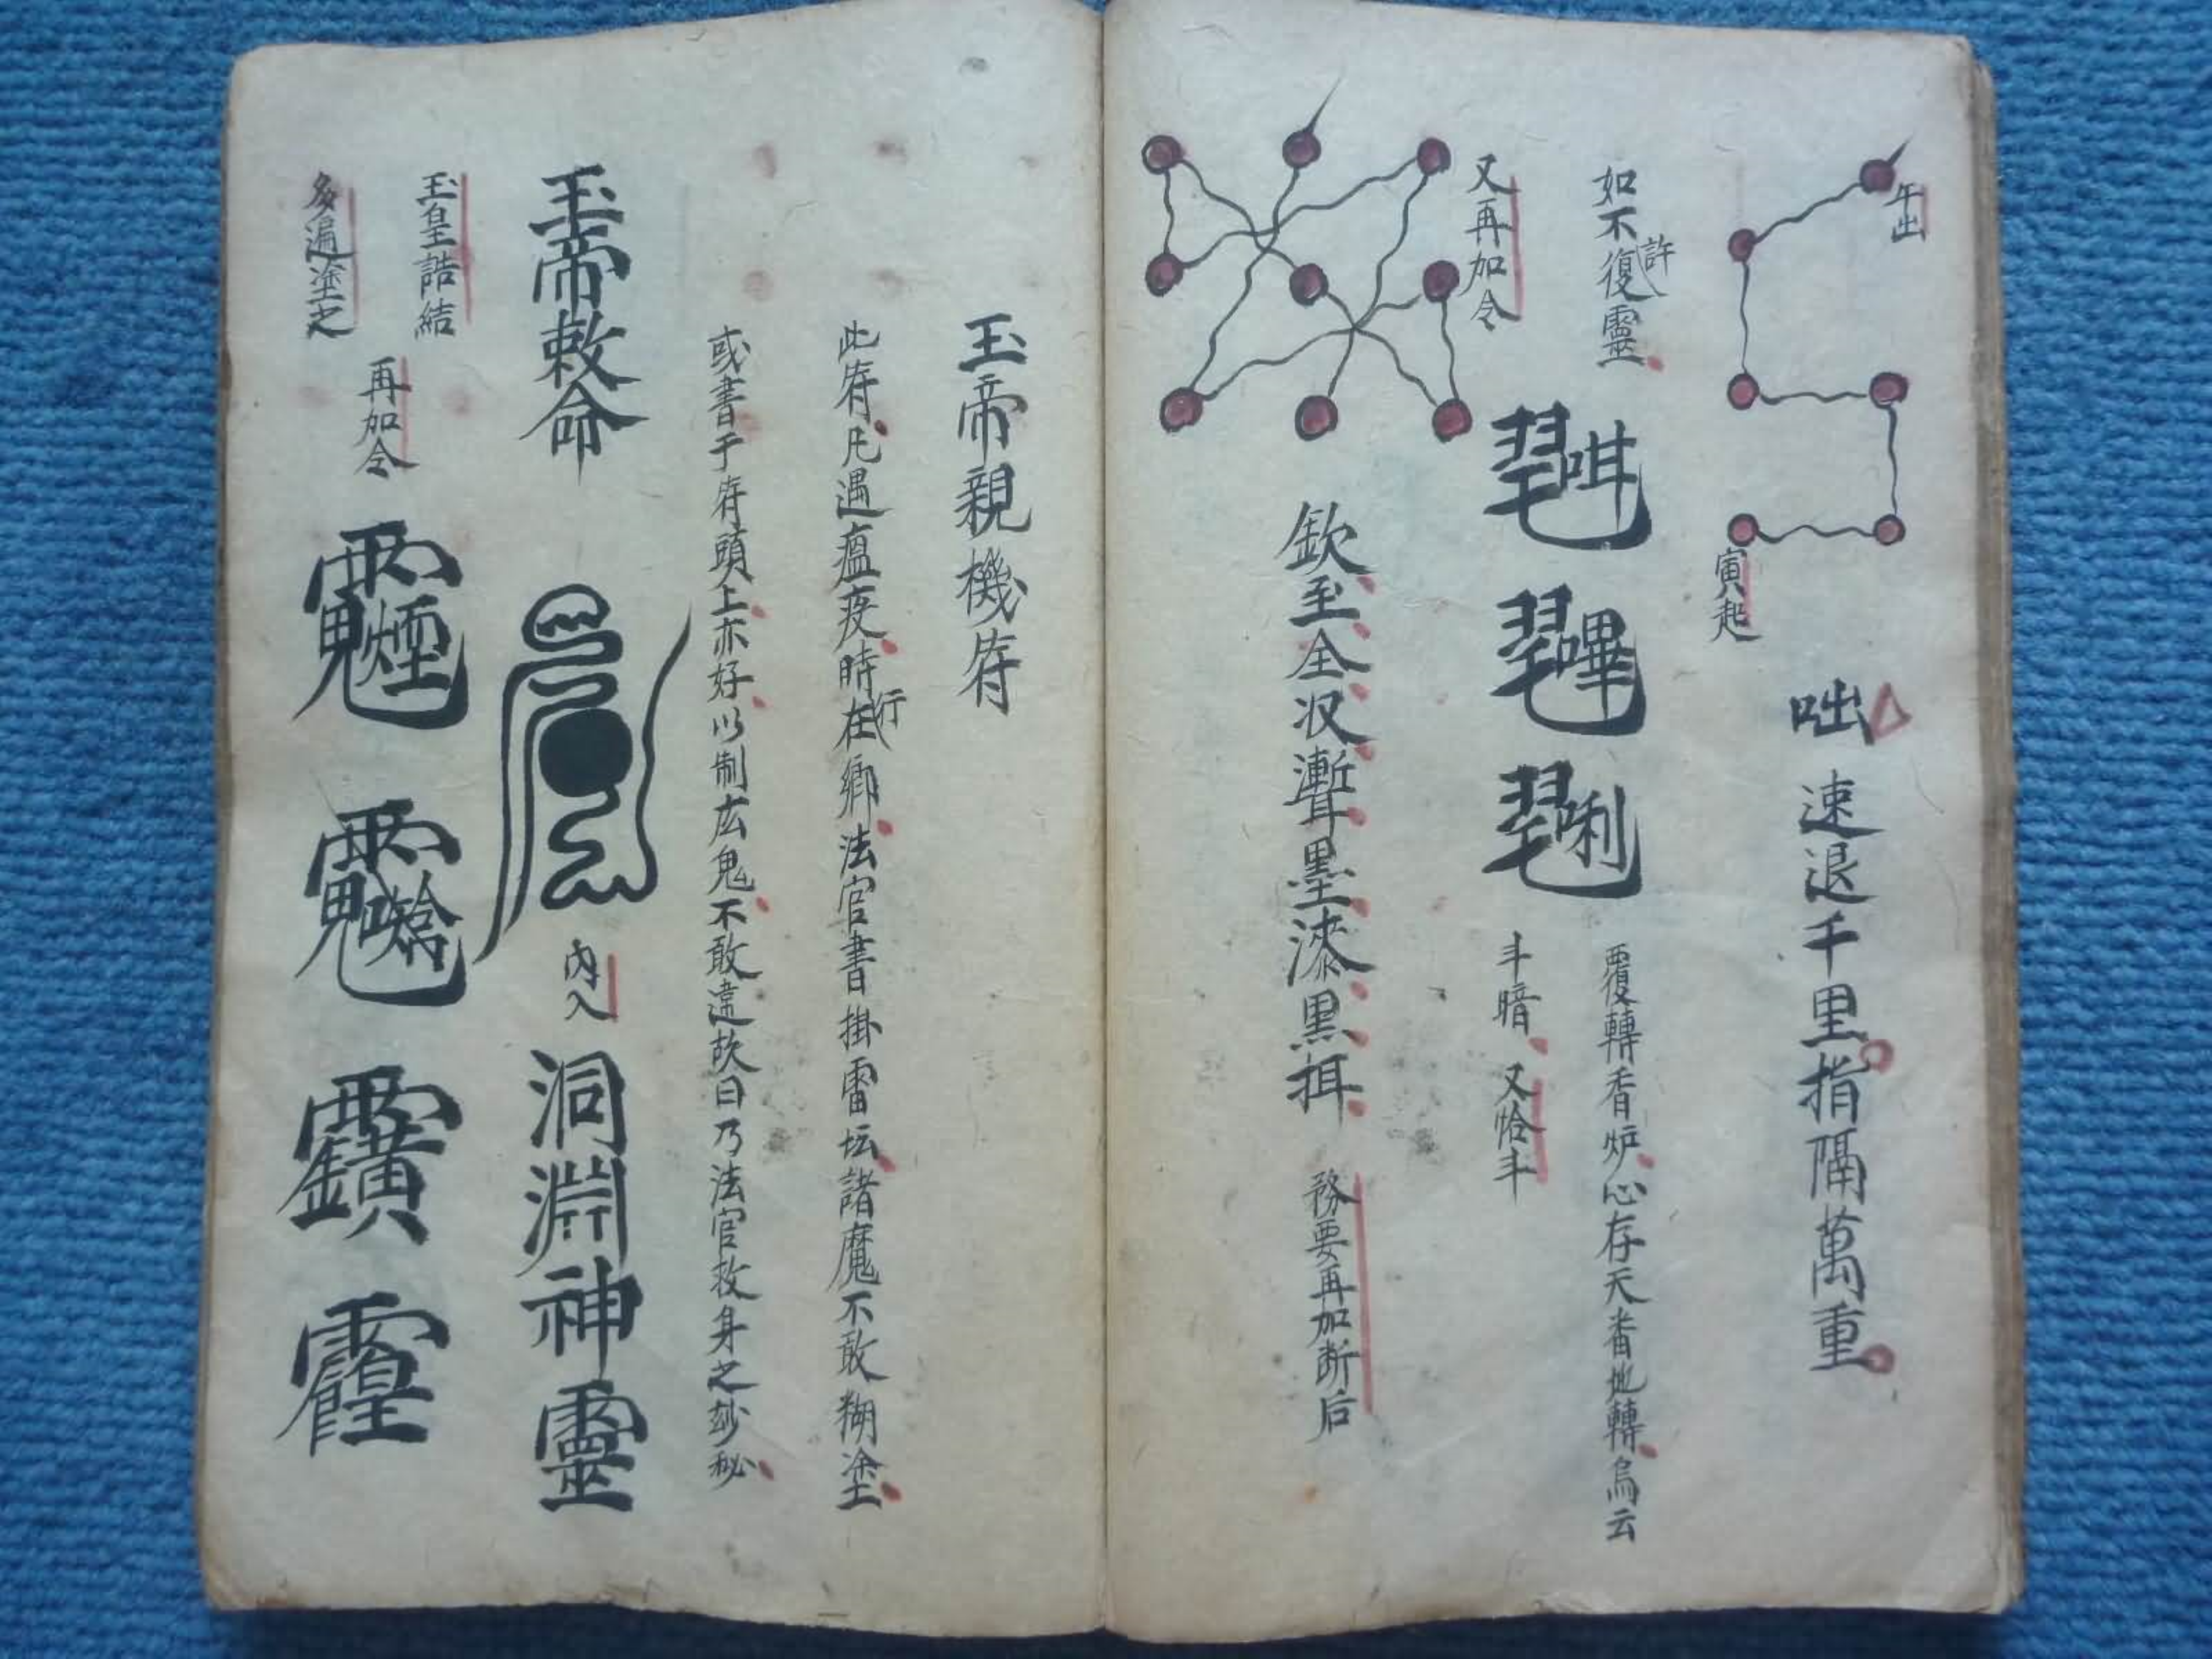 午出
寅起
咄 速退千里指隔萬重
如不許復靈
覆轉香炉心存天番地轉烏云
斗暗 又恰斗
又再加令
欽至全収漸耳墨漆黑挕
務要再加断后
玉帝親機符
此符凡遇瘟疫時行在鄉法官書掛雷坛諸魔不敢糊塗
或書于符頭上亦好以制広鬼不敢違故曰乃法官救身之妙秘
玉帝敕命
内入
洞淵神靈
玉皇誥結
再加令
多遍塗之